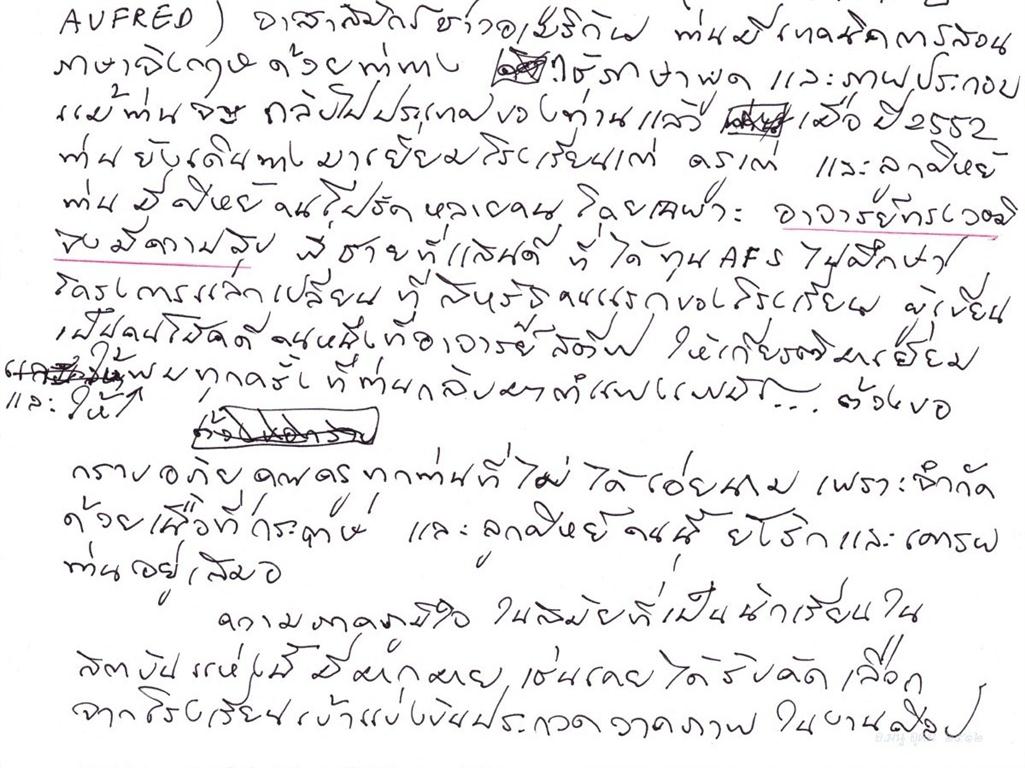 AUFRED) อาสาสมัครชาวอเมริกัน ท่านมีเทคนิคการสอน
ภาษาอังกฤษด้วยท่าทาง ใช้ภาษาพูด และภาพประกอบ
แม้ท่านจะ กลับไปประเทศของท่านแล้ว เมื่อปี 2552
ท่านยังเดินทางมาเยี่ยมโรงเรียนเก่า ครูเก่า และลูกศิษย์
ท่านมีศิษย์คนโปรดหลายคน โดยเฉพาะ อาจารย์
มีความสุข พี่ชายที่แสนดี ที่ได้ทุน AFS ไปศึกษา
โครงการแลกเปลี่ยน ที่สหรัฐคนแรกของโรงเรียน ผู้เขียน
เป็นคนโชคดีคนหนึ่งที่อาจารย์สตีฟ ให้เกียรติมาเยี่ยม
และให้พบทุกครั้งที่ท่านกลับมากำแพงเพชร... ต้องขอ
กราบอภัยคุณครูทุกท่านที่ไม่ได้เอ่ยนาม เพราะจำกัด
ด้วยเนื้อที่กระดาษ และลูกศิษย์คนนี้ ยังรักและเคารพ
ท่านอยู่เสมอ
ความภาคภูมิใจ ในสมัยที่เป็นนักเรียนใน
สถาบันแห่งนี้ มีมากมาย เช่นเคยได้รับคัดเลือก
จากโรงเรียนเข้าแข่งขันประกวดวาดภาพ ในงานศิลป